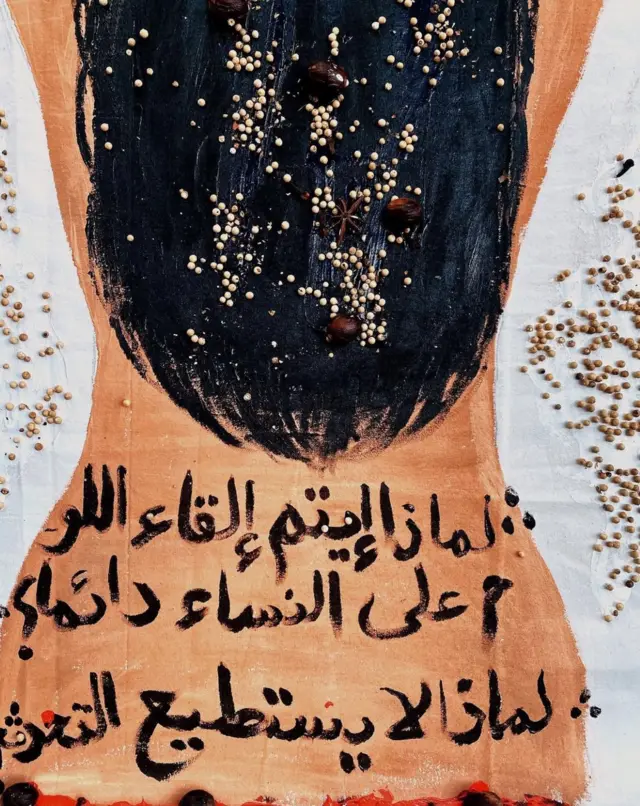 لماذا إيتم إلقاء اللو
م على النساء دائما؟
لماذا لا يستطيع